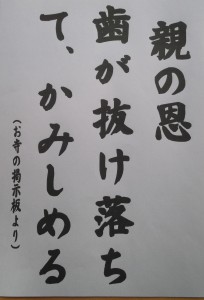 親の恩
歯が抜け落ち
て、かみしめる
(お寺の掲示板より)